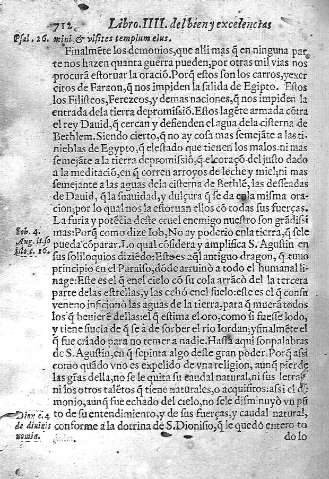 712 Libro.IIII. del bien y excelencias
Psal. 26. mini & visites templum eius.
Finalmẽte los demonios, que alli mas q̃ en ninguna par
te nos hazen quanta guerra pueden, por otras mil vias nos
procurã estoruar la oraciõ. Porq̃ estos son los carros, y exer
citos de Faraon, q̃ nos impiden la salida de Egipto. Estos
los Filisteos, Ferezeos, y demas naciones, q̃ nos impiden la
entrada dela tierra de promissiõ. Estos la gẽte armada cõtra
el rey Dauid, q̃ cercan y defienden el agua dela cisterna de
Bethlem. Siendo cierto, q̃ no ay cosa mas semejãte a las ti-
nieblas de Egypto, q̃ el estado que tienen los malos, ni mas
semejãte a la tierra de promissiõ, q̃ el coraçõ del justo dado
a la meditaciõ, en q̃ corren arroyos de leche y miel, ni mas
semejante a las aguas dela cisterna de Bethlẽ, las desseadas
de Dauid, q̃ la suauidad, y dulçura q̃ se da en la misma ora-
cion, por lo qual nos la estoruan ellos cõ todas sus fuerças.
La furia y potẽcia deste cruel enemigo nuestro son grãdissi
Iob. 4. mas: Porq̃ como dize Iob, No ay poderio en la tierra, q̃ se le
Aug. li. so pueda cõparar. Lo qual cõsidera y amplifica S. Agustin en
lilo. c. 16. sus soliloquios diziẽdo: Este es aq̃l antiguo dragon, q̃ tuuo
principio en el Paraiso, dõde arruinò a todo el humanal li-
nage: Este es el q̃ en el cielo cõ su cola arrãcò del la tercera
parte delas estrellas, y las echò en el suelo: este es el q̃ con su
veneno inficionò las aguas de la tierra, para q̃ muerã todos
los q̃ beuierẽ dellas: el q̃ estima el oro, como si fuesse lodo,
y tiene fiucia de q̃ se ha de sorber el rio Iordan: y finalmẽte el
que fue criado para no temer a nadie. Hasta aqui son palabras
de S. Agustin, en q̃ se pinta algo deste gran poder. Porq̃ assi
como quãdo vno es expelido de vna religion, aunq̃ pierde
las grãs della, no se le quita su caudal natural, ni sus letras
ni los otros talẽtos q̃ tiene naturales, o acquisitos: assi el de
monio, aunq̃ fue echado del cielo, no se le disminuyò vn pũ
Dion. c. 4 to de su entendimiento, y de sus fuerças, y caudal natural,
de diuinis conforme a la dotrina de S. Dionisio, q̃ le quedò entero to
nomin.
do lo